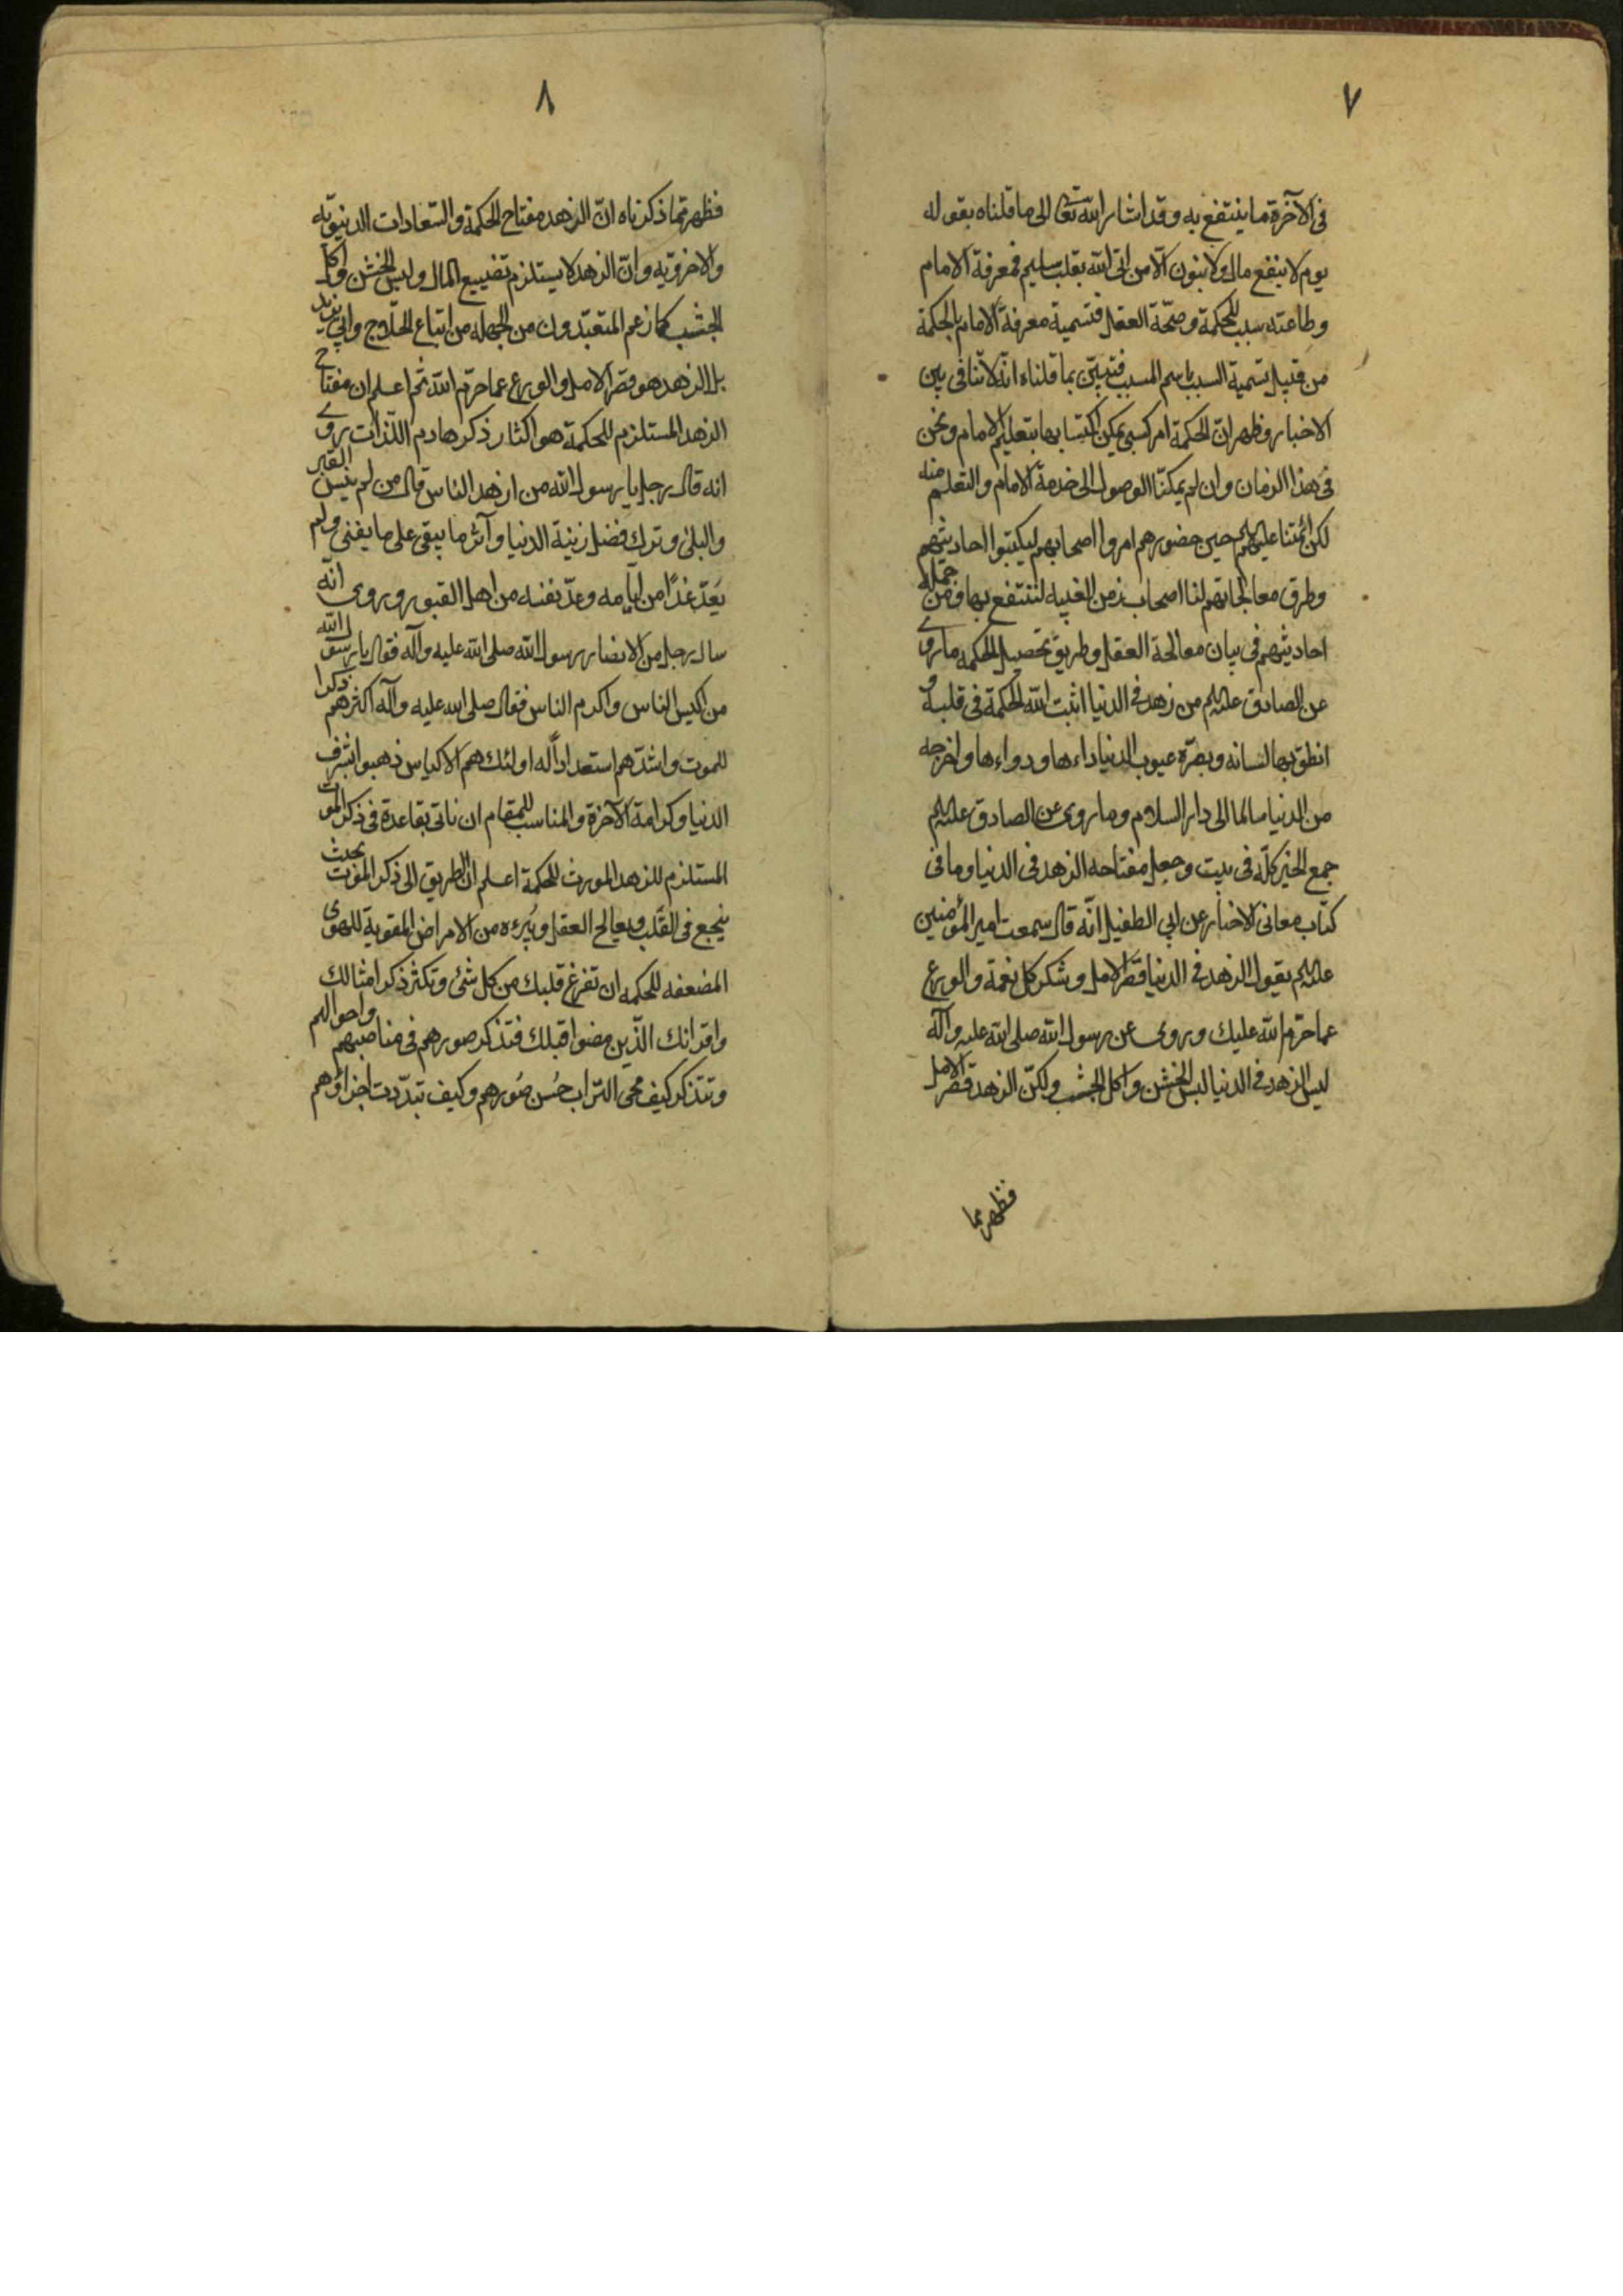 ٧
فی الآخرة ما ینتفع به وقد اشار الله تعا الی ما قلناه بقوله
یوم لا ینفع مال ولا بنون الّا من اتی الله بقلب سلیم فمعرفة الامام
وطاعته سبب للحکمة وصحّة العقل فتسمیة معرفة الامام بالحکمة
من قبیل تسمیة السبب باسم المسبب فتبیّن بما قلناه انّه لا تنافی بین
الاخبار وظهر انّ الحکمة امر کسبی یمکن اکتسابها بتعلیم الامام ونحن
فی هذا الزمان وان لم یمکنّا الوصول الی خدمة الامام والتعلم منه
لکن ائمّتنا علیهم حین حضورهم امروا اصحابهم لیکتبوا احادیثهم
وطرق معالجاتهم لنا اصحاب زمن الغیبه لننتفع بها ومن جملة
احادیثهم فی بیان معالجة العقل وطریق تحصیل الحکمه ما روی
عن الصادق علیهم من زهد فی الدنیا اثبت الله الحکمة فی قلبه و
انطق بها لسانه وبصّره عیوب الدنیا داءها ودواءها واخرجه
من الدنیا سالما الی دار السلام وما روی عن الصادق علیهم
جمع الخیر کلّه فی بیت وجعل مفتاحه الزهد فی الدنیا وما فی
کتاب معانی الاخبار عن ابی الطفیل انّه قال سمعت امیر المؤمنین
علیهم یقول الزهد فی الدنیا قصَر الامل وشکر کل نعمة والورع
عما حرّم الله علیك وروی عن رسول الله صلی الله علیه وآله
لیس الزهد فی الدنیا لبس الخشن واکل الجشب ولکنّ الزهد قصر الامل
فظهر مما
٨
فظهر ممّا ذکرناه انّ الزهد مفتاح الحکمة والسّعادات الدنیویّه
والاخرویّه وانّ الزهد لا یستلزم تضییع المال ولبس الخشن واکل
الجشب کما زعم المتعبّدون من الجهله من اتباع الحلّاج وابی یزید
بل الزهد هو قصَر الامل والورع عما حرّم الله ثم اعلم ان مفتاح
الزهد المستلزم للحکمة هو اکثار ذکر هادم اللّذات روی
انه قال رجل یا رسول الله من ازهد الناس قال من لم ینس القبر
والبلی وترك فضل زینة الدنیا وآثر ما یبقی علی ما یفنی ولم
یَعدّ غدًا من ایّامه وعدّ نفسه من اهل القبور وروی انّه
سال رجل من الانصار رسول الله صلی الله علیه وآله فقال یا رسول الله
من اکیس الناس واکرم الناس فقال صلی الله علیه وآله اکثرهم ذکرا
للموت واشدّهم استعدادًا له اولئك هم الاکیاس ذهبوا بشرف
الدنیا وکرامة الآخرة والمناسب للمقام ان ناتی بقاعدة فی ذکر الموت
المستلزم للزهد المورث للحکمة اعلم انّ الطریق الی ذکر الموت بحیث
ینجع فی القلب ویعالج العقل ویُبرءه من الامراض المقویة للهوی
المضعفه للحکمه ان تفرغ قلبك من کل شئ وتکثر ذکر امثالك
واقرانك الّذین مضوا قبلك فتذکر صورهم فی مناصبهم واحوالهم
وتتذکر کیف محی التراب حُسن صُورهم وکیف تبدّدت اجزاؤهم